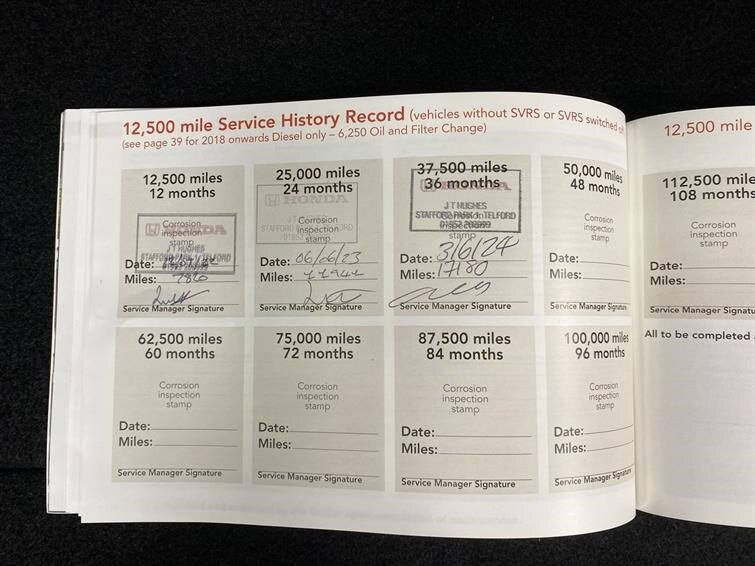 12,500 mile Service History Record (vehicles without SVRS or SVRS switched of
(see page 39 for 2018 onwards Diesel only – 6,250 Oil and Filter Change)
12,500 miles
12 months
Corrosion
inspection
stamp
HONDA
J T HUGHES
STAFFORD PARK 1 TELFORD
Date:
Miles: 7860
Service Manager Signature
25,000 miles
24 months
HONDA
Corrosion
inspection
stamp
J T HUGHES
STAFFORD PARK 1 TELFORD
Date: 06/06/23
Miles: 11944
Service Manager Signature
37,500 miles
36 months
HONDA
J T HUGHES
STAFFORD PARK 1 TELFORD
Corrosion
inspection
stamp
Date: 3/6/24
Miles: 17180
Service Manager Signature
50,000 miles
48 months
Corrosion
inspection
stamp
Date:
Miles:
Service Manager Signature
62,500 miles
60 months
Corrosion
inspection
stamp
Date:
Miles:
Service Manager Signature
75,000 miles
72 months
Corrosion
inspection
stamp
Date:
Miles:
Service Manager Signature
87,500 miles
84 months
Corrosion
inspection
stamp
Date:
Miles:
Service Manager Signature
100,000 miles
96 months
Corrosion
inspection
stamp
Date:
Miles:
Service Manager Signature
12,500 mile
112,500 mile
108 months
Date:
Miles:
Service Manager
All to be completed